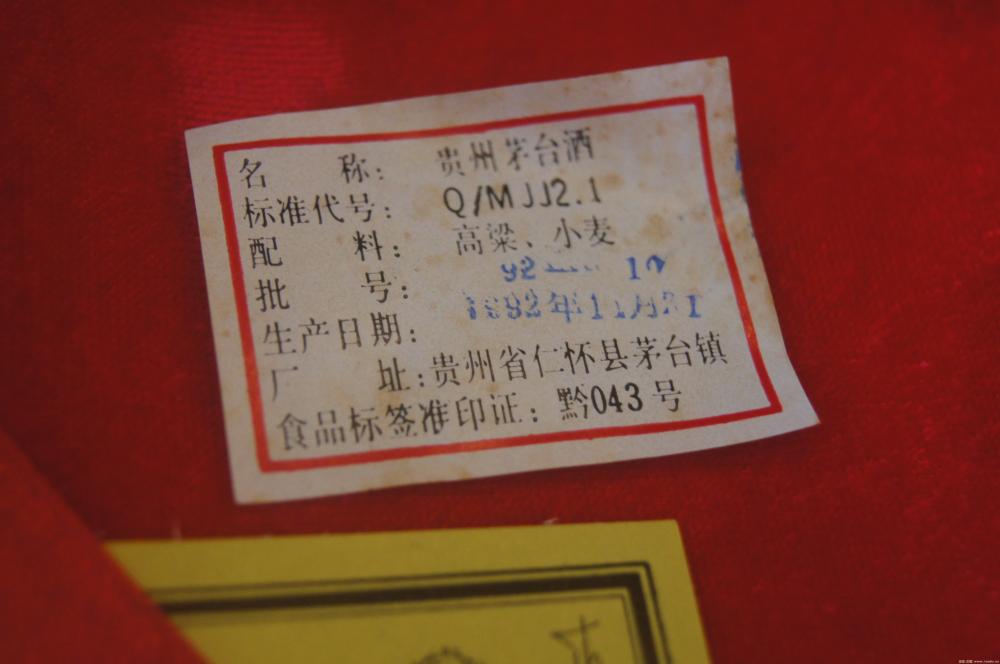 名 称: 贵州茅台酒
标准代号: Q/MJJ2.1
配 料: 高粱、小麦
批 号: 92 10
生产日期: 1992年11月21
厂 址: 贵州省仁怀县茅台镇
食品标签准印证: 黔043号